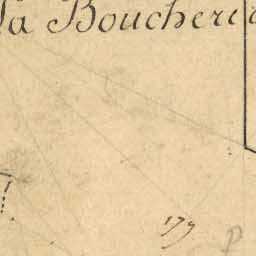 la Boucherie
177
P